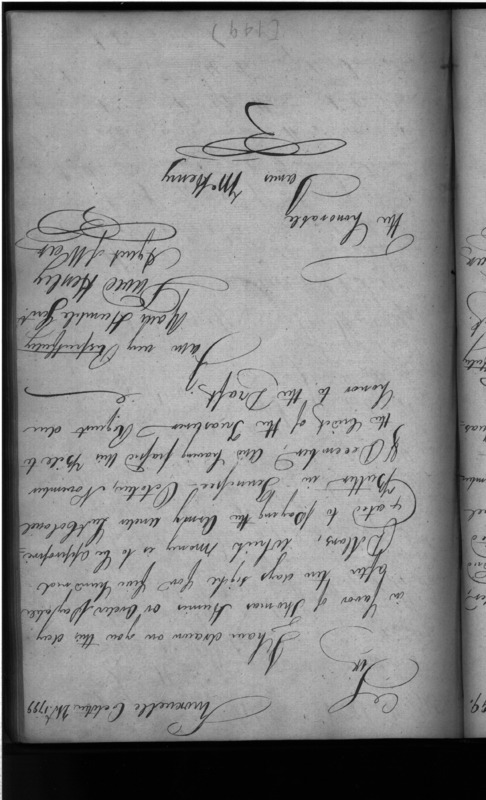 Knoxville October 21st 1799
Sir
I have drawn on you this day
in favor of Thomas Humes or Order payable
after ten days sight for five hundred
Dollars, which Money is to be appropri-
ated to paying the Army under Lt Colonel
Butler in Tennessee - October, November
& December, and having passed this Bill to
the Credit of the Treasurer Request due
honor to the Draft.
I am very Respectfully
Your Humble Servt
David Henley
Agent of War
The Honorable
James McHenry